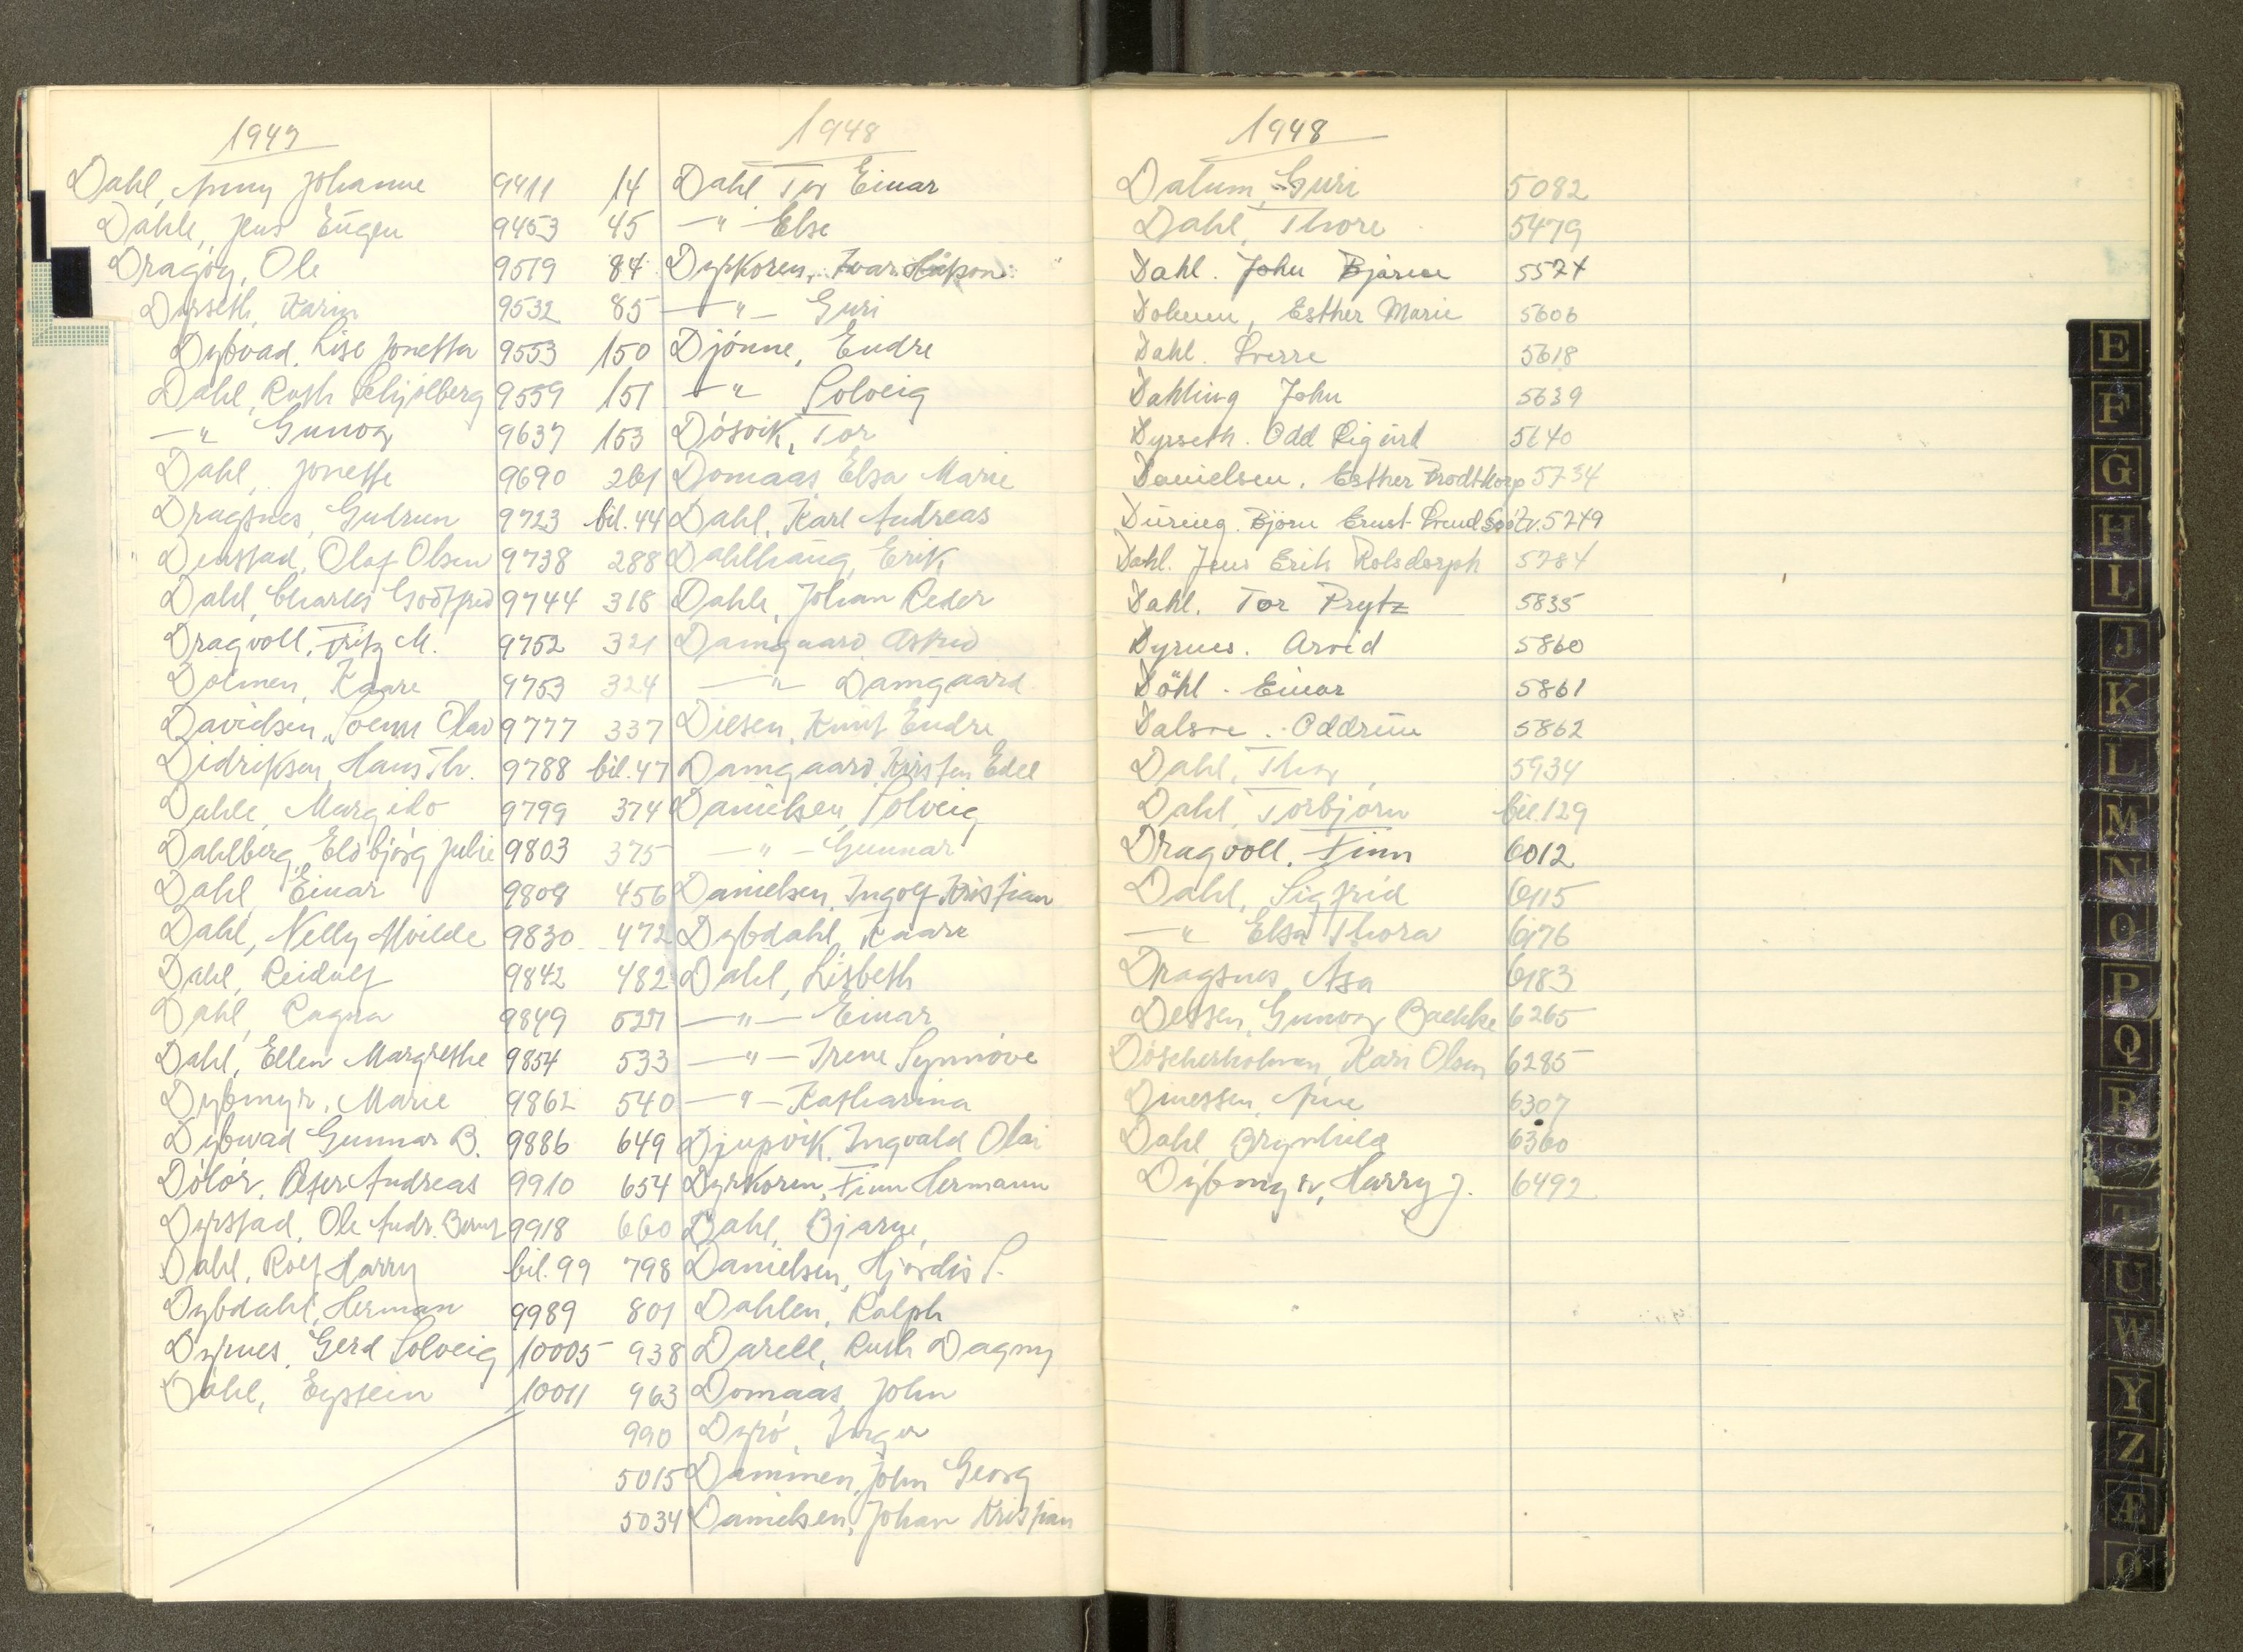 1947
Dahl, Anny Johanne 9411
Dahle, Jens Eugen 9453
Dragøy, Ole 9519
Dyrseth, Karin 9532
Dybvad, Lise Jonetta 9553
Dahl, Ruth Schjölberg 9559
—"— Gunvor 9637
Dahl, Jonette 9690
Dragsnes, Gudrun 9723
Denstad, Olaf Olsen 9738
Dahl, Charles Godtfred 9744
Dragvoll, Fritz M. 9752
Dolmen, Kaare 9753
Davidsen, Olav 9777
Didriksen, Hans Th. 9788
Dahle, Margido 9799
Dahlberg, Eldbjørg Julie 9803
Dahl, Einar 9808
Dahl, Nelly Alvilde 9830
Dahl, Reidulf 9842
Dahl, Ragna 9849
Dahl, Ellen Margrethe 9854
Dybmyr, Marie 9862
Dybwad Gunnar B. 9886
Dölör, Peter Andreas 9910
Dyrstad, Ole Andr. 9918
Dahl, Rolf Harry bil. 99
Dybdahl, Herman 9989
Dyrnes, Gerd Solveig 10005
Dahl, Eystein 10011
1948
14 Dahl Tor Einar
45 —"— Else
84 Dyrkoren, Ivar Håkon
85 —"— Guri
150 Djönne, Endre
151 —"— Solveig
153 Dösvik, Tor
261 Domaas Elsa Marie
bil. 44 Dahl, Karl Andreas
288 Dahlhaug, Erik
318 Dahle, Johan Peder
321 Damgaard Astrid
324 —"— Damgaard
337 Diesen, Knut Endre
bil. 47 Damgaard, Kirsten Edel
374 Danielsen, Solveig
375 —"— Gunnar
456 Danielsen, Ingolf Kristian
472 Dybdahl, Kaare
482 Dahl, Lisbeth
527 —"— Einar
533 —"— Irene Synnöve
540 —"— Katharina
649 Djupvik, Ingvald Olai
654 Dyrkoren, Finn Hermann
660 Dahl, Bjarne,
798 Danielsen, Hjördis S.
801 Dahlen, Ralph
938 Darell, Ruth Dagny
963 Domaas, John
990 Dyrö, Inger
5015 Dammen, John Georg
5034 Danielsen, Johan Kristian
1948
Datum, Guri 5082
Dahl, Thore 5479
Dahl. John Bjarne 5574
Dolmen, Esther Marie 5606
Dahl. Sverre 5618
Dahling John 5639
Dyrseth. Odd Sigurd 5640
Danielsen. Esther Brodtkorp 5734
Düring. Björn Ernst Svend 5749
Dahl. Jens Erik Rolsdorph 5784
Dahl. Tor Prytz 5835
Dyrnes. Arvid 5860
Döhl. Einar 5861
Dalsve. Oddrun 5862
Dahl, Thor, 5934
Dahl, Torbjörn bil. 129
Dragvoll, Finn 6012
Dahl, Sigfrid 6115
—"— Elsa Thora 6176
Dragsnes, Asa 6183
Dessen, Gunvor Baekke 6265
Döscherholmen, Kari Olsen 6285
Dinessen, Arne 6307
Dahl, Brynhild 6360
Dybmyr, Harry J. 6492
E
F
G
H
I
J
K
L
M
N
O
P
Q
R
S
T
U
W
Y
Z
Æ
Ø